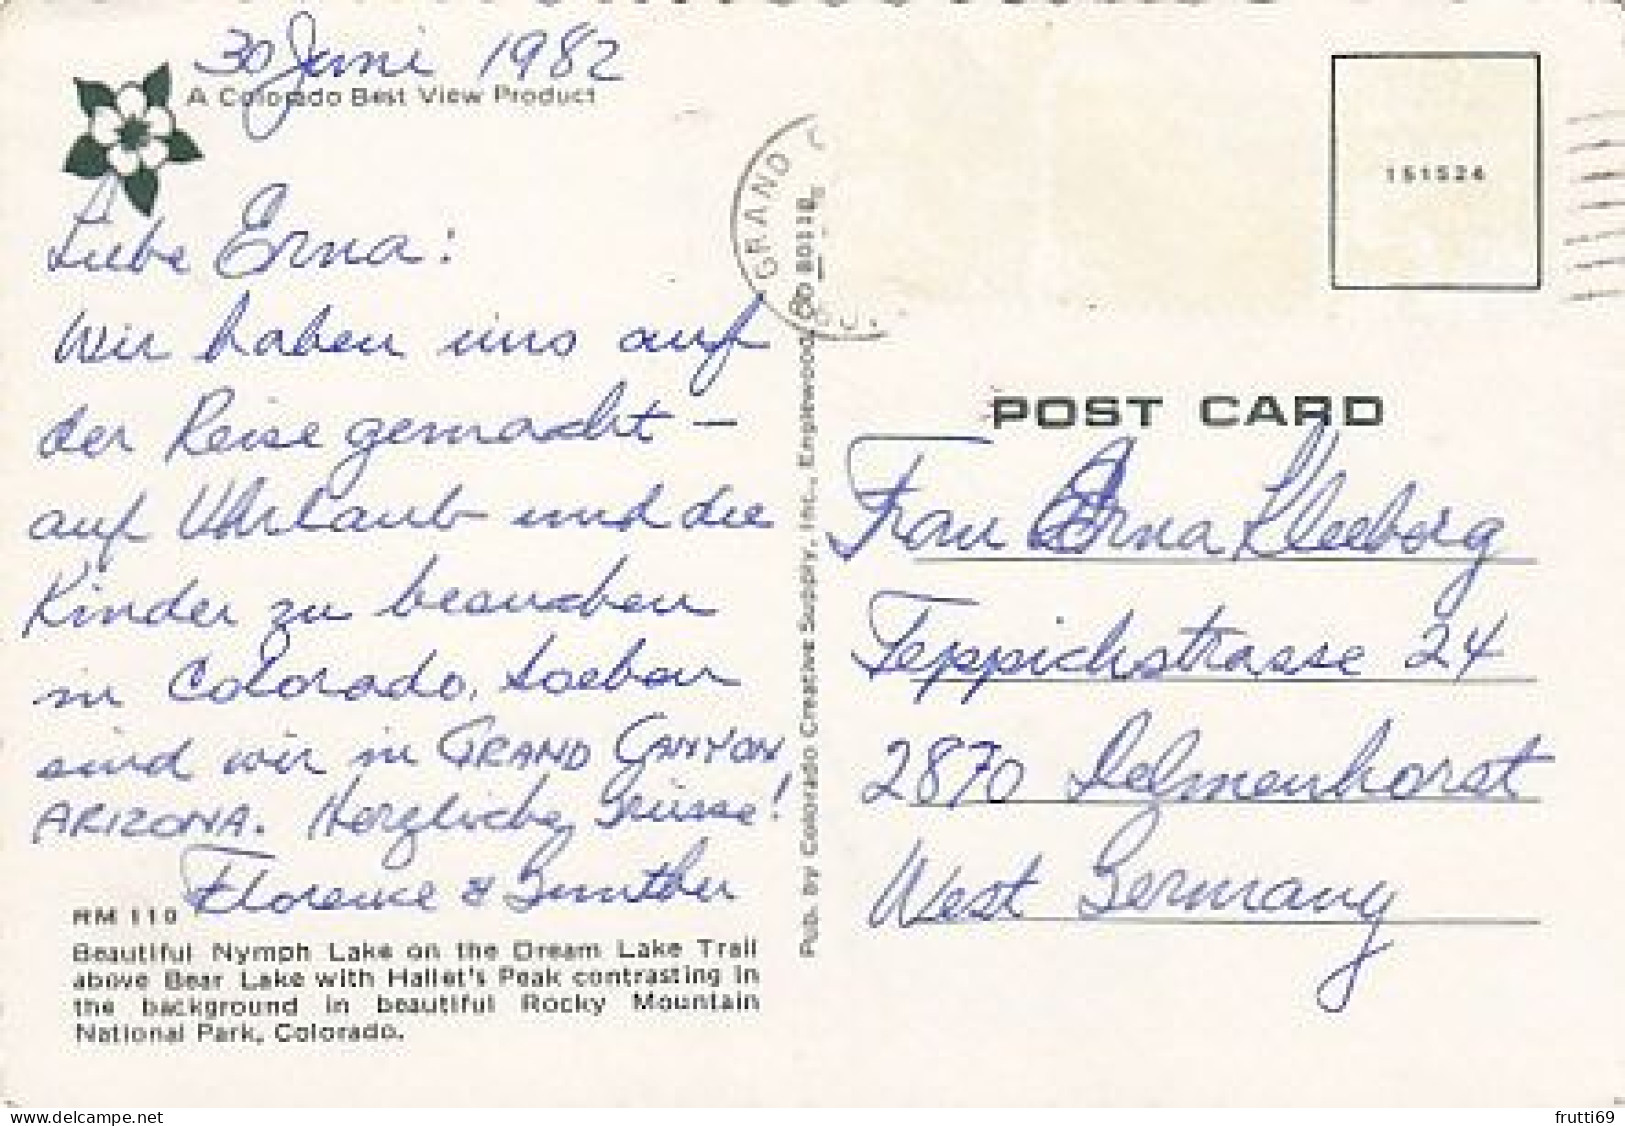 30 Juni 1982
A Colorado Best View Product
Liebe Erna:
Wir haben uns auf
der Reise gemacht –
auf Uhrlaub und die
Kinder zu besuchen
in Colorado. Soeben
sind wir in GRAND CANYON
ARIZONA. Herzliche Grüsse!
Florence & Gunther
RM 110
Beautiful Nymph Lake on the Dream Lake Trail
above Bear Lake with Hallet's Peak contrasting in
the background in beautiful Rocky Mountain
National Park, Colorado.
Pub. by Colorado Creative Supply, Inc., Englewood, CO 80110
GRAND
151524
POST CARD
Frau Erna Kleeborg
Teppichstrasse 24
2870 Delmenhorst
West Germany
delcampe.net
frutti69